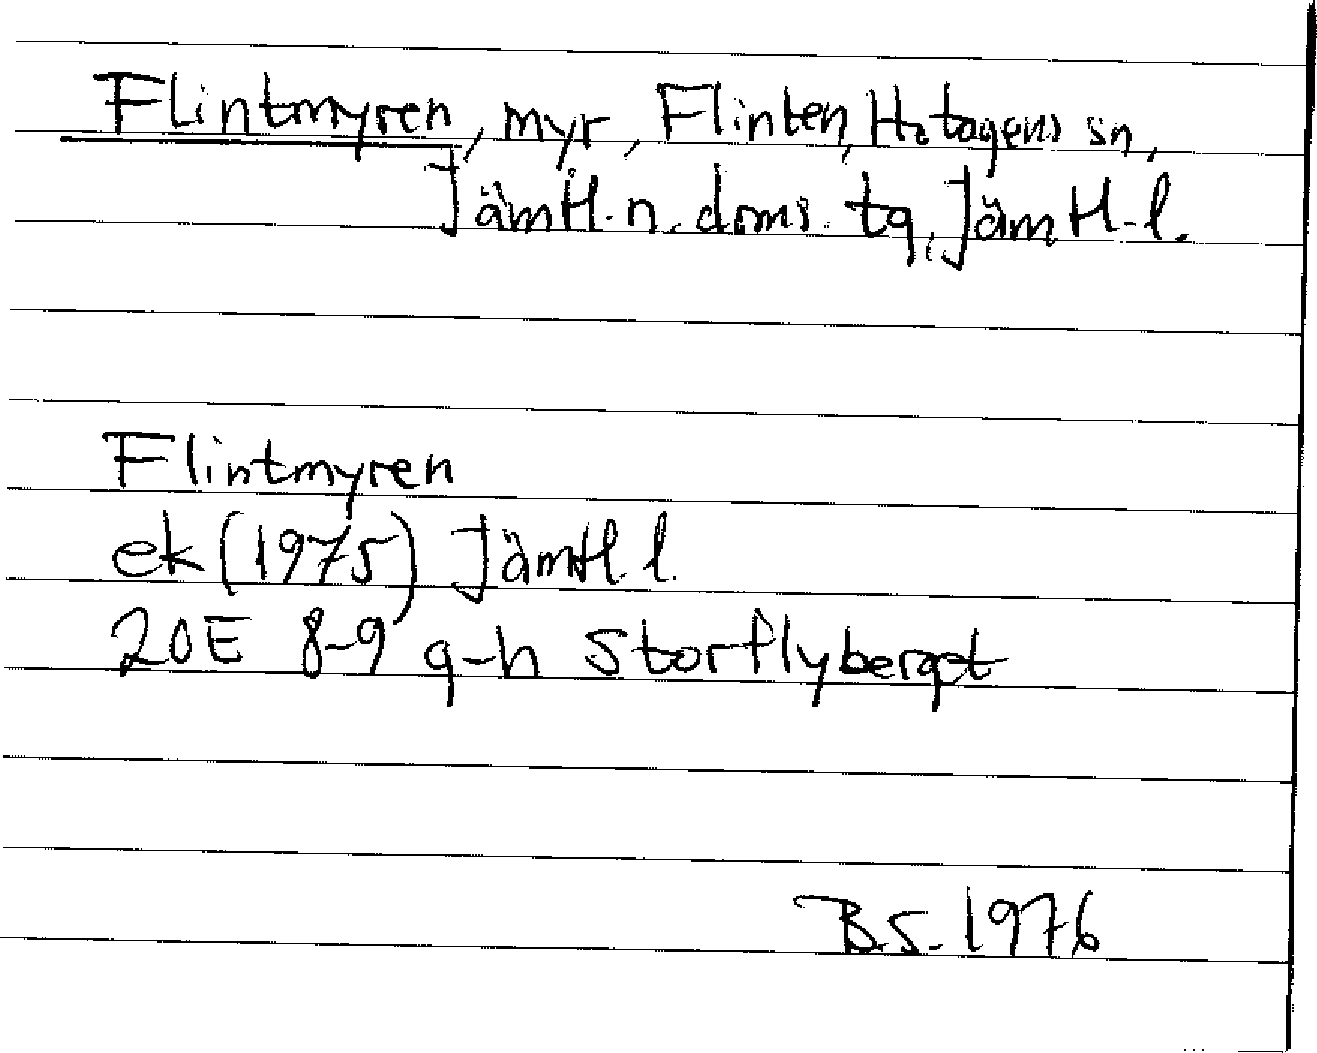 Flintmyren, myr, Flinten, Hotagens sn,
Jämtl. n. doms. tg, Jämtl. l.
Flintmyren
ek (1975) Jämtl. l.
20E 8-9 g-h Storflyberget
B.S. 1976